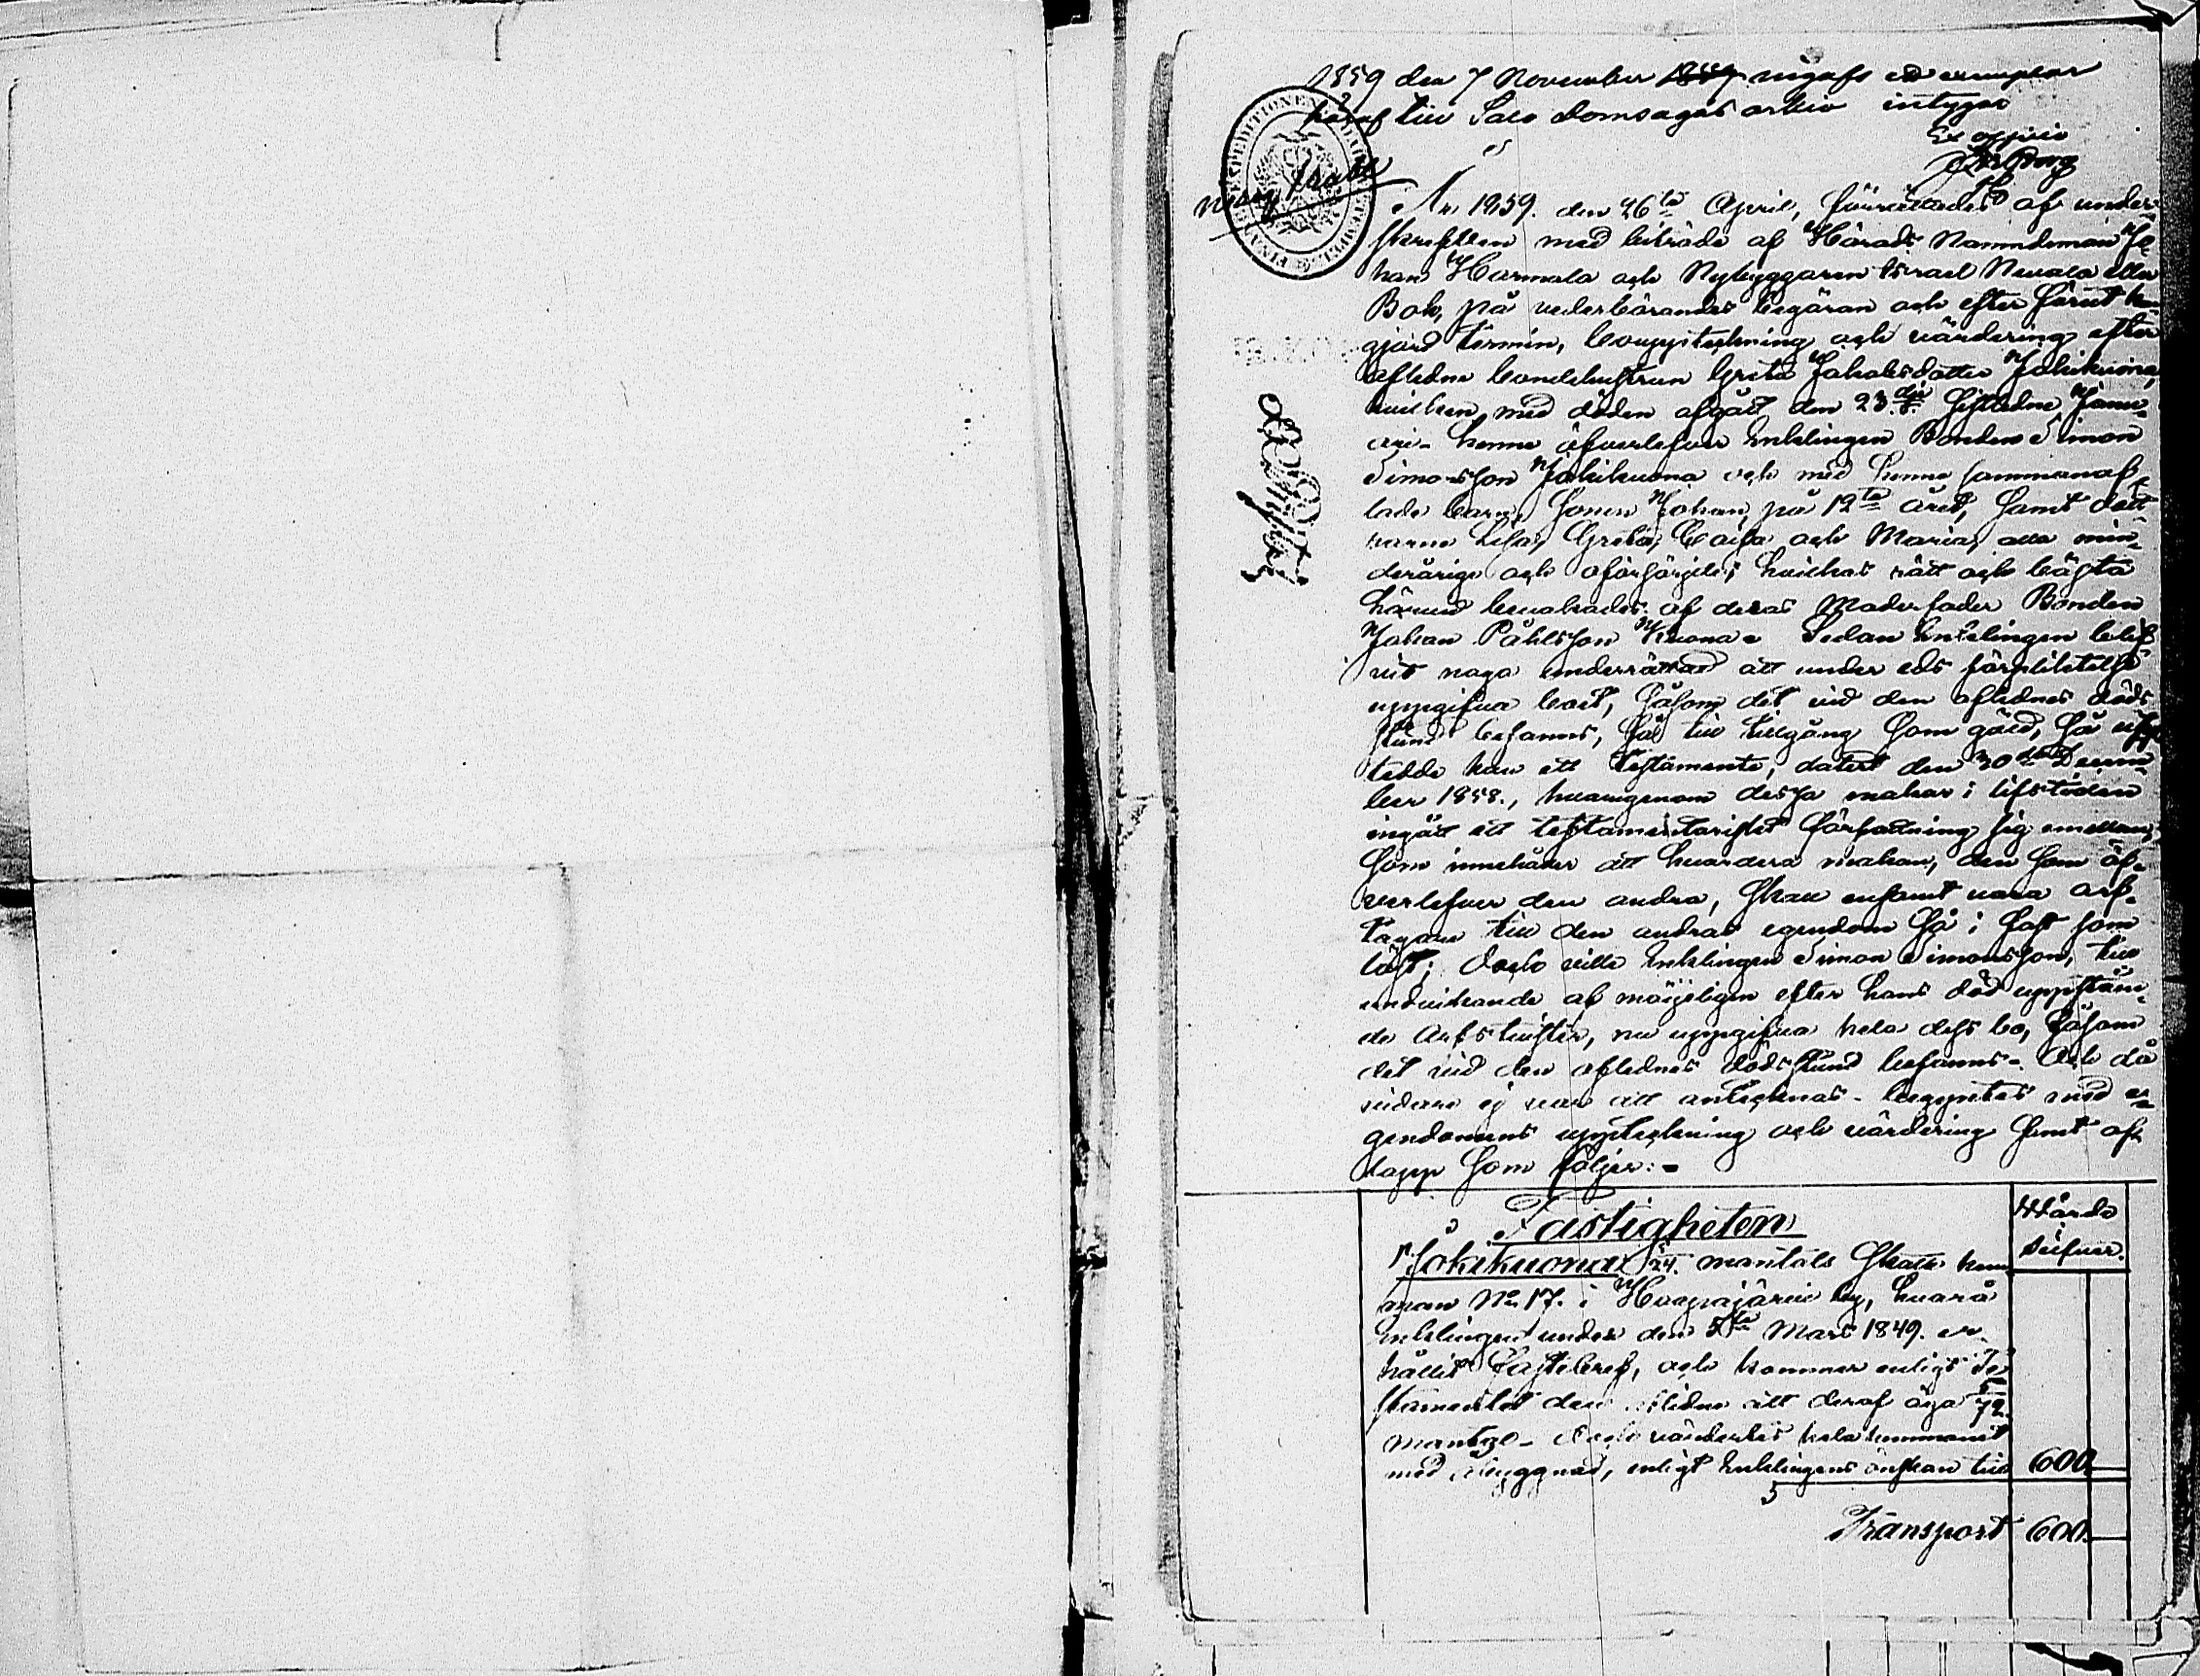 1859 den 7 November 1859 ingafs ett exemplar
häraf till Salo Domsagas arkiv intygar
Ex officio
År 1859. den 26ta April, förrättades af under-
skrefven med biträde af Härads Nämndeman Jo-
han Harmala och Nybyggaren Israel Nevala eller
Bok, på vederbörandes begäran och efter förut kun-
gjord termin, bouppteckning och värdering efter
aflidne bondehustrun Greta Jakobsdotter Jokikuona,
hvilken, med döden afgått den 23dje sistledne Janu-
ari. henne öfverlefver enklingen Bonden Simon
Simonsson Jokikuona och med henne sammanaf-
lade barn, Sonen Johan, på 12te året, samt dött-
rarne Lisa, Greta, Caisa och Maria, alla min-
derårige och oförsörjde; hvilkas rätt och bästa
härvid bevakades af deras Moderfader Bonden
Johan Påhlsson Kuona. Sedan enklingen blif-
vit noga underrättad att under eds förpliktelse
uppgifva boet, såsom det vid den aflidnes döds-
stund befanns, så till tillgång som gäld, så upp-
tedde han ett testamente, daterat den 30de Decem-
ber 1858., hvarigenom dessa makar i lifstiden
ingått ett testamentariskt författning sig emellan,
som innehåller att hvardera makan, den som öf-
verlefver den andra, skall ensamt vara arf-
tagare till den andras egendom så i fast som
löst; dock ville enklingen Simon Simonsson, till
undvikande af möjeligen efter hans död uppståen-
de Arfstvister, nu uppgifva hela dess bo, såsom
det vid den aflidnes dödsstund befanns. Och då
vidare ej var att anteckna, begyntes med e-
gendomens uppteckning och värdering samt af-
lopp som följer:
Fastigheten
Värde
Silfver.
Jokikuona 5/24. mantals Skatte hem-
man No 17. i Haapajärvi by, hvarå
enklingen under den 5te Mars 1849. er-
hållit Fastebref, och kommer enligt Te-
stamentet den aflidne att deraf äga 5/72
mantal. Och värderades hela hemmanet
med åbyggnad, enligt enklingens önskan till 600.
Transport 600.